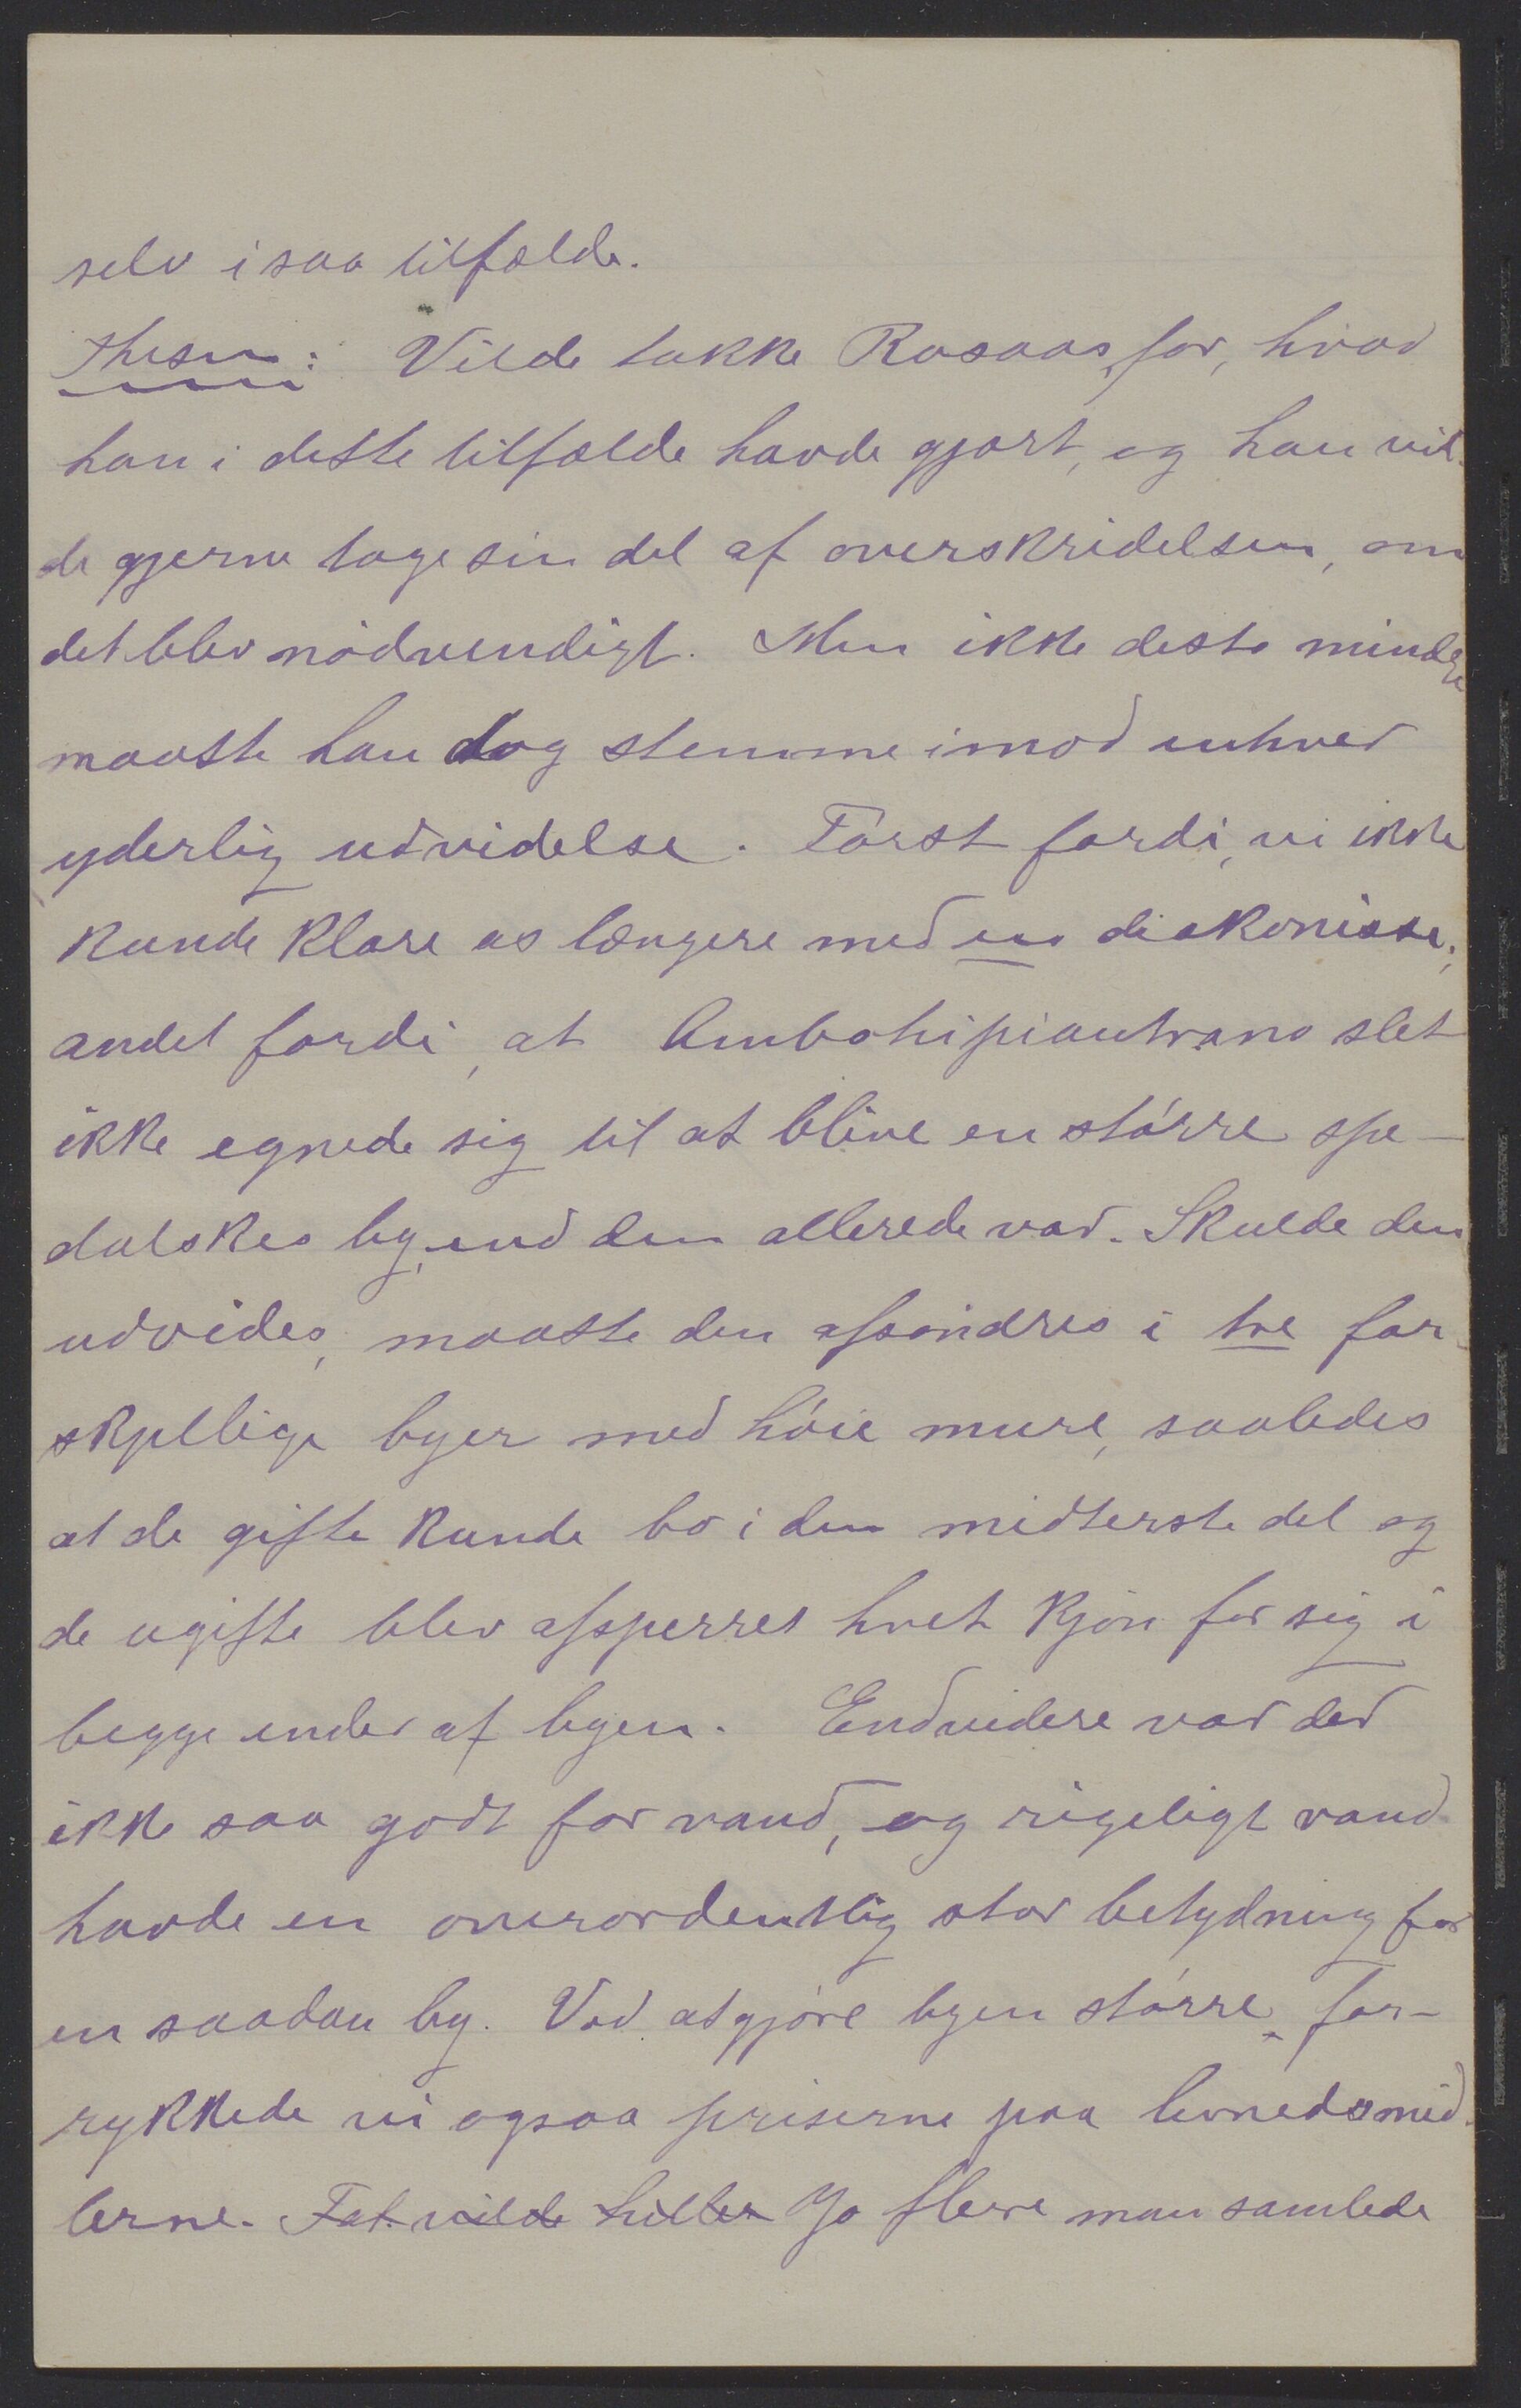 selv i saa tilfælde.
Thesen: Vilde takke Rosaas, for, hvad
han i dette tilfælde havde gjort, og han vil-
de gjerne tage sin del af overskridelsen, om
det blev nödvendigt. Men ikke desto mindre
maatte han dog stemme imod enhver
yderlig udvidelse. Först fordi, vi ikke
kunde klare os længere med en diakonisse;
andet fordi, at Ambohipiantrano slet
ikke egnede sig til at blive en större spe-
dalskes by, end den allerede var. Skulde den
udvides, maatte den afsöndres i tre for-
skjellige byer med höie mure, saaledes
at de gifte kunde bo i den midterste del og
de ugifte blev afsperret hvet kjön for sig i
begge ender af byen. Endvidere var der
ikke saa godt for vand, og rigeligt vand
havde en overordentlig stor betydning for
en saadan by. Ved at gjöre byen större, for-
rykkede vi ogsaa priserne paa levnedsmid-
lerne. Fat. vilde heller Jo flere man samlede